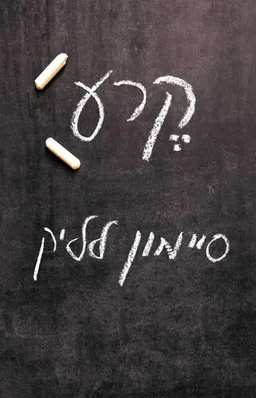 קֶרע
סיימון לליק